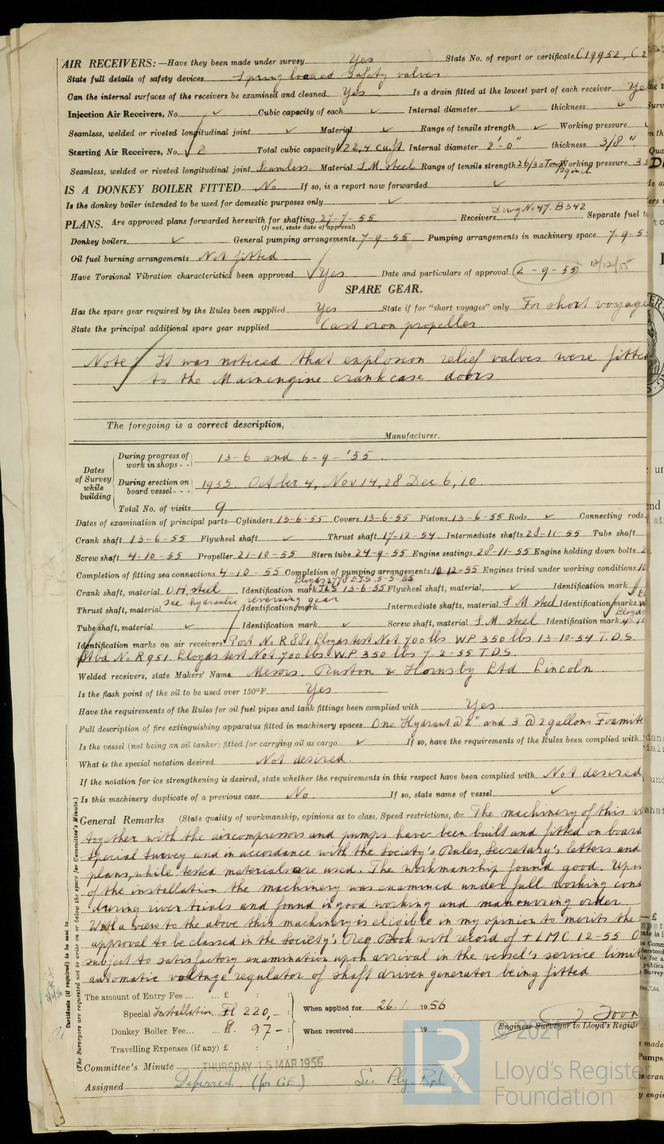 AIR RECEIVERS:—Have they been made under survey Yes State No. of report or certificate C19952, C2
State full details of safety devices Spring loaded Safety valves
Can the internal surfaces of the receivers be examined and cleaned Yes Is a drain fitted at the lowest part of each receiver Ye
Injection Air Receivers, No. ✓ Cubic capacity of each ✓ Internal diameter ✓ thickness ✓
Seamless, welded or riveted longitudinal joint ✓ Material ✓ Range of tensile strength ✓ Working pressure
Starting Air Receivers, No. 2 Total cubic capacity 22,4 cu ft Internal diameter 2'-0" thickness 3/8"
Seamless, welded or riveted longitudinal joint Seamless Material S.M. steel Range of tensile strength 26/30 Tons Working pressure
IS A DONKEY BOILER FITTED No If so, is a report now forwarded ✓
Is the donkey boiler intended to be used for domestic purposes only ✓
PLANS. Are approved plans forwarded herewith for shafting 27-7-55 Receivers Drwg No 47. B342 Separate fuel
(If not, state date of approval)
Donkey boilers ✓ General pumping arrangements 7-9-55 Pumping arrangements in machinery space 7-9-5
Oil fuel burning arrangements Not fitted
Have Torsional Vibration characteristics been approved Yes Date and particulars of approval 2-9-55 12/12/55
SPARE GEAR.
Has the spare gear required by the Rules been supplied Yes State if for "short voyages" only For short voyage
State the principal additional spare gear supplied Cast iron propeller
Note: It was noticed that explosion relief valves were fitted
to the Mainengine crankcase doors
The foregoing is a correct description,
Manufacturer.
Dates of Survey while building
During progress of work in shops - - 13-6 and 6-9-'55
During erection on board vessel - - - 1955 October 4, Nov 14, 28 Dec 6, 10
Total No. of visits 9
Dates of examination of principal parts—Cylinders 13-6-55 Covers 13-6-55 Pistons 13-6-55 Rods ✓ Connecting rods
Crank shaft 13-6-55 Flywheel shaft ✓ Thrust shaft 17-12-54 Intermediate shafts 28-11-55 Tube shaft
Screw shaft 4-10-55 Propeller 21-10-55 Stern tube 24-9-55 Engine seatings 28-11-55 Engine holding down bolts
Completion of fitting sea connections 4-10-55 Completion of pumping arrangements 10-12-55 Engines tried under working conditions
Crank shaft, material O.H. steel Identification mark Flywheel shaft, material, ✓ Identification mark
Thrust shaft, material see hydraulic reversing gear Identification mark Intermediate shafts, material S.M steel Identification marks
Tube shaft, material ✓ Identification mark ✓ Screw shaft, material S.M steel Identification mark
Identification marks on air receivers Port No R881 Lloyds test No1 700 lbs W.P 350 lbs 13-10-54 T.D.S.
Stbd No R951 Lloyds test No1 700 lbs W.P 350 lbs 7-2-55 T.D.S.
Welded receivers, state Makers' Name Messrs. Ruston & Hornsby Ltd Lincoln
Is the flash point of the oil to be used over 150°F. Yes
Have the requirements of the Rules for oil fuel pipes and tank fittings been complied with Yes
Full description of fire extinguishing apparatus fitted in machinery spaces One Hydrant @ 2" and 3 @ 2 gallons Foamite
Is the vessel (not being an oil tanker) fitted for carrying oil as cargo ✓ If so, have the requirements of the Rules been complied with
What is the special notation desired Not desired
If the notation for ice strengthening is desired, state whether the requirements in this respect have been complied with Not desired
Is this machinery duplicate of a previous case No If so, state name of vessel ✓
General Remarks (State quality of workmanship, opinions as to class, Speed restrictions, &c. The machinery of this
together with the aircompressors and pumps have been built and fitted on board
Special Survey and in accordance with the Society's Rules, Secretary's letters and
plans, while tested materials are used. The workmanship found good. Upon
of the installation the machinery was examined under full working con
during river trials and found in good working and maneuvring order.
With a view to the above this machinery is eligible in my opinion to merits the
approval to be classed in the Society's Reg. Book with record of + LMC 12-55
subject to satisfactory examination upon arrival in the vessel's service limit
automatic voltage regulator of shaft driven generator being fitted
The amount of Entry Fee ... £ : :
Special Installation Fl 220,-
Donkey Boiler Fee ... fl. 97-
Travelling Expenses (if any) £ : :
When applied for 26.1 1956
When received 19
Engineer Surveyor to Lloyd's Regist
Committee's Minute THURSDAY 15 MAR 1956
Assigned Deferred (for G.E.) See Ply Rpt
(The Surveyors are requested not to write on or below the space for Committee's Minute.)
Certificate (if required) to be sent to
© 2021
LR
Lloyd's Register
Foundation